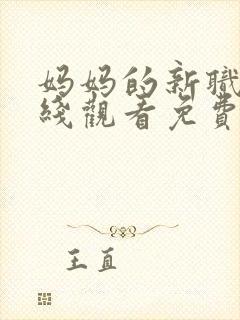 妈妈的新職
綫觀看免費
王直